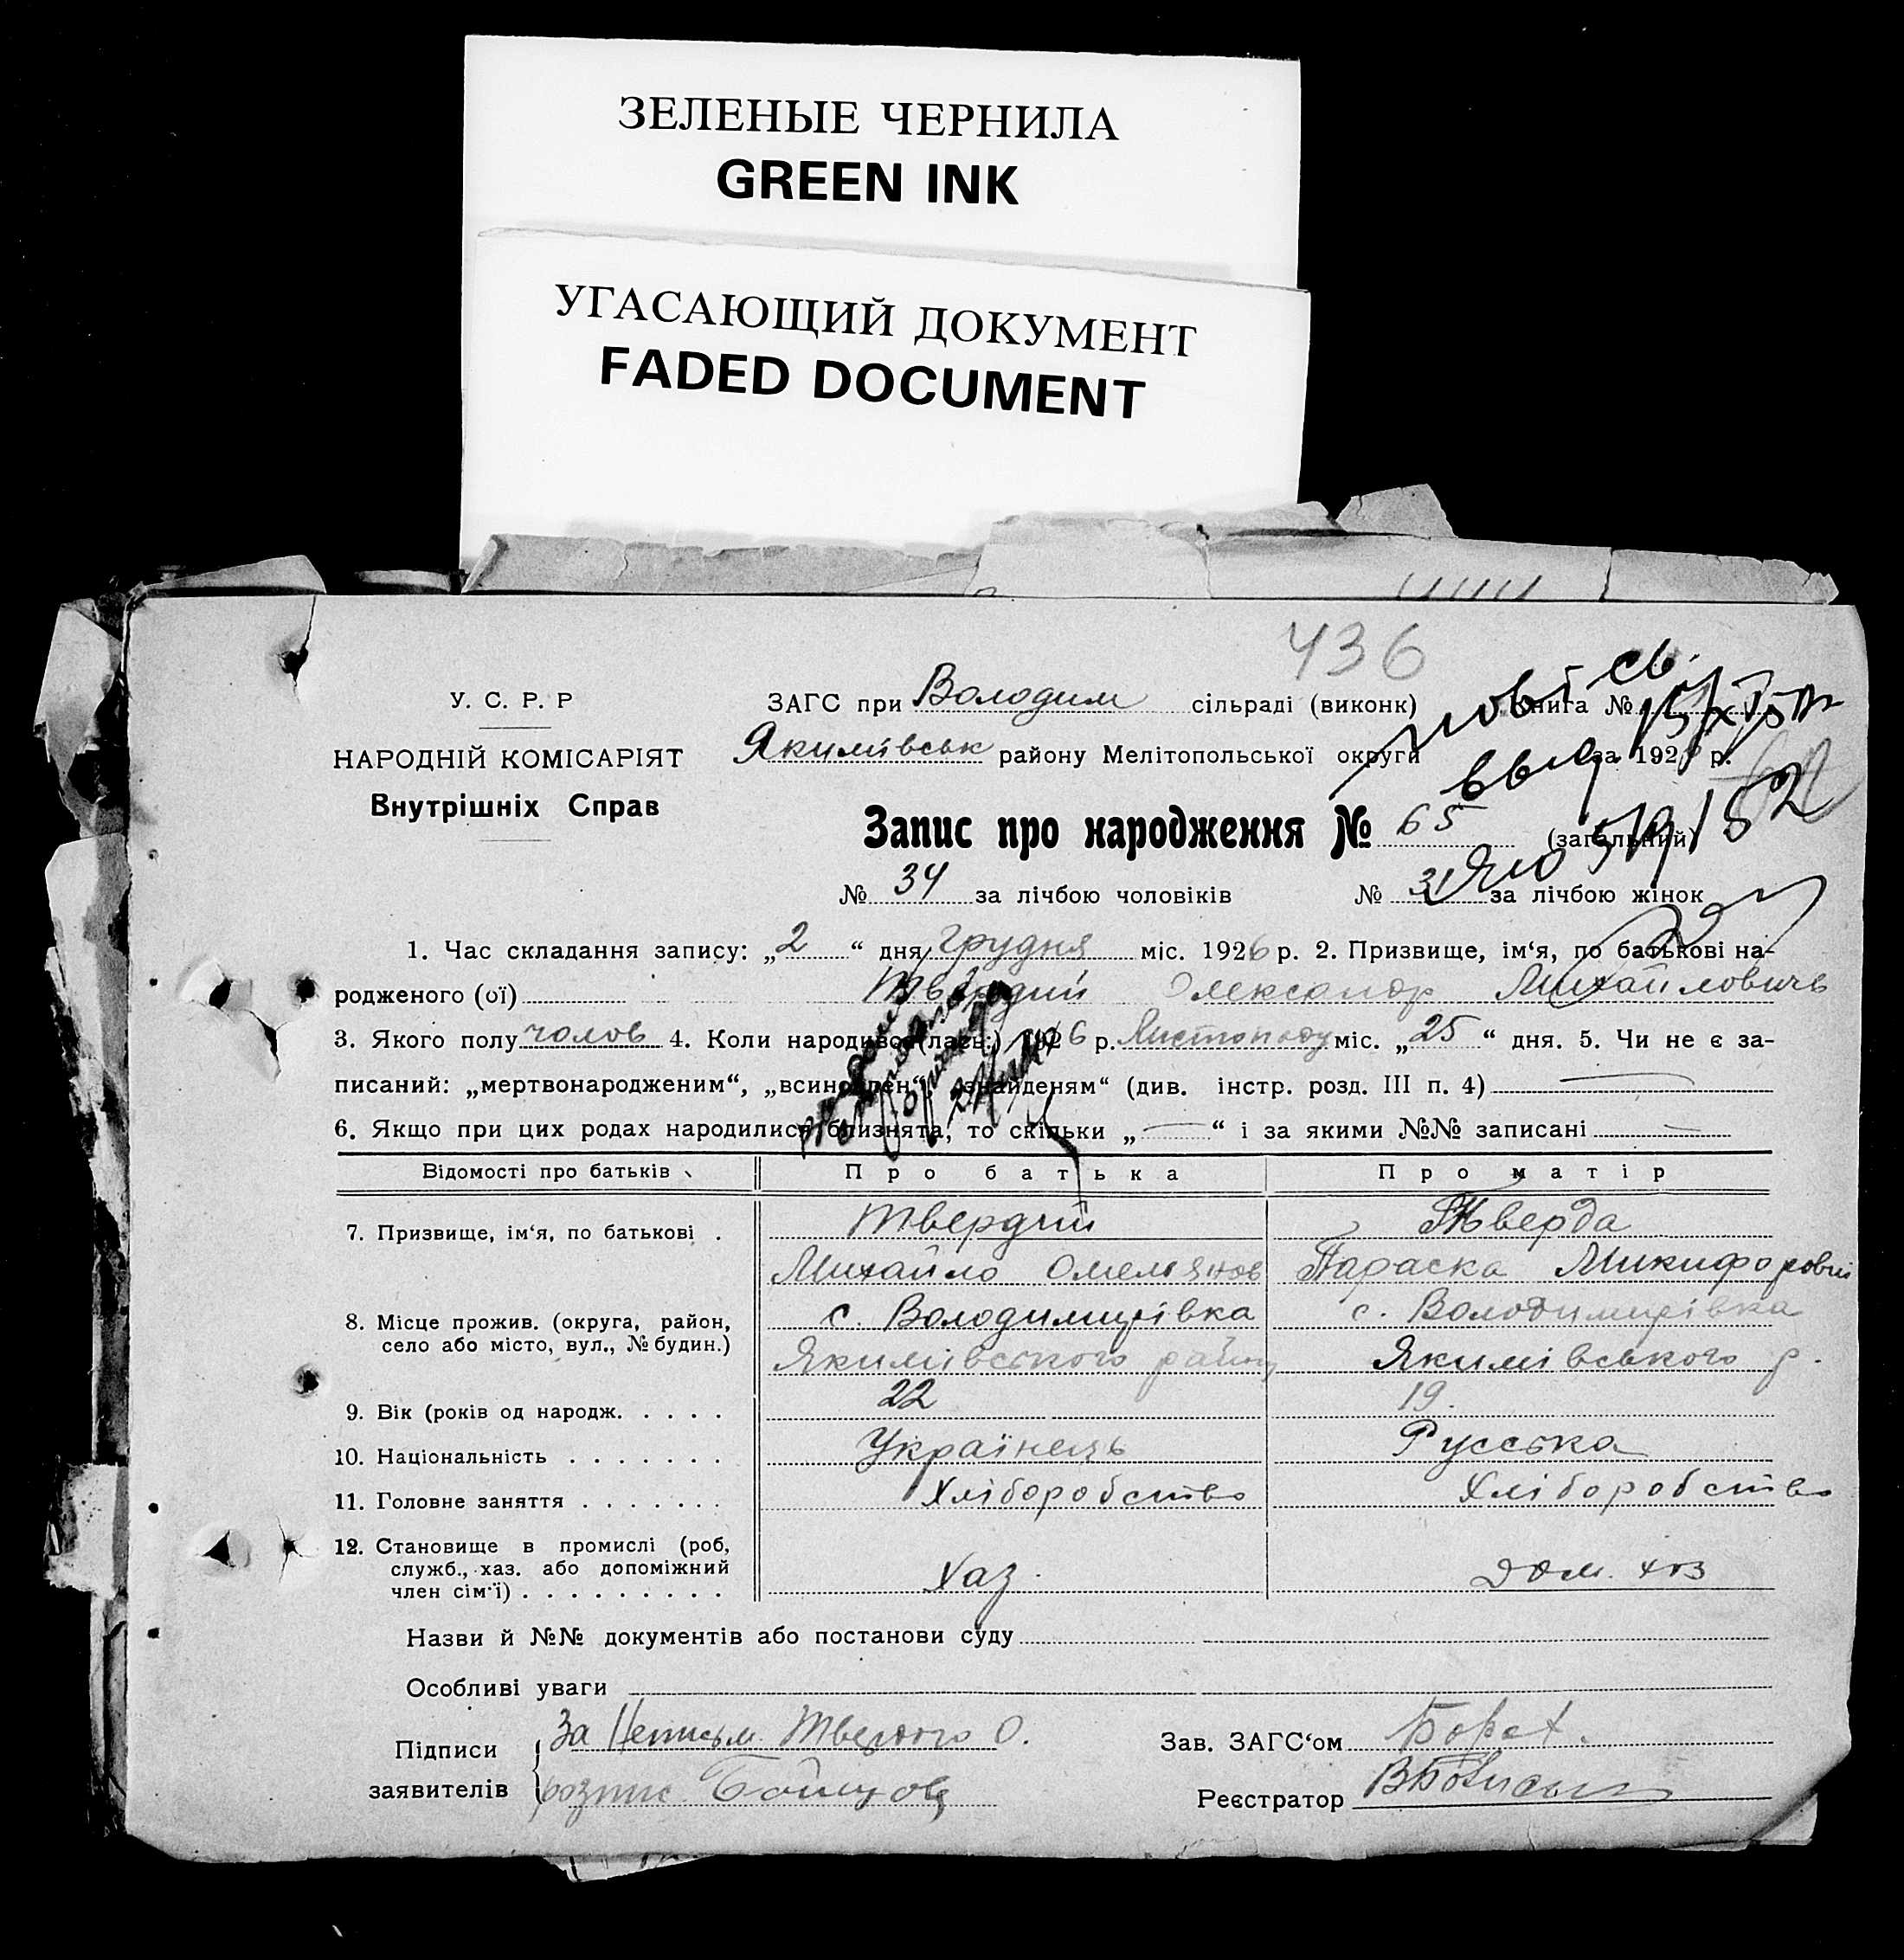 ЗЕЛЕНЫЕ ЧЕРНИЛА
GREEN INK
УГАСАЮЩИЙ ДОКУМЕНТ
FADED DOCUMENT
436
У. С. Р. Р
НАРОДНІЙ КОМІСАРІЯТ
Внутрішніх Справ
ЗАГС при Володим сільраді (виконк) Книга №
Якимівськ району Мелітопольської округи за 1926 р.
Запис про народження № 65 (загальний)
№ 34 за лічбою чоловіків № 31 за лічбою жінок
1. Час складання запису: „2“ дня грудня міс. 1926 р. 2. Призвище, ім‘я, по батькові на-
родженого (ої) Твердий Олександр Михайловичь
3. Якого полу чолов 4. Коли народився(лась:) 1926 р. Листопаду міс. „25“ дня. 5. Чи не є за-
писаний: „мертвонародженим“, „всиновлен“, „знайденям“ (див. інстр. розд. III п. 4)
6. Якщо при цих родах народилися близнята, то скільки „—“ і за якими №№ записані —
Відомості про батьків Про батька Про матір
7. Призвище, ім‘я, по батькові . Твердий Тверда
Михайло Омелянов Параска Микифоровн
8. Місце прожив. (округа, район, с. Володимирівка с. Володимирівка
село або місто, вул., № будин.) Якимівського району Якимівського р.
9. Вік (років од народж. . . . . 22 19.
10. Національність . . . . . . . Українець Русська
11. Головне заняття . . . . . . . Хліборобство Хліборобство
12. Становище в промислі (роб,
служб., хаз. або допоміжний Хаз. Дом. хоз
член сім‘ї) . . . . . . . . .
Назви й №№ документів або постанови суду
Особливі уваги
Підписи За Неписьм. Твердого О. Зав. ЗАГС‘ом
заявителів розпис Реєстратор